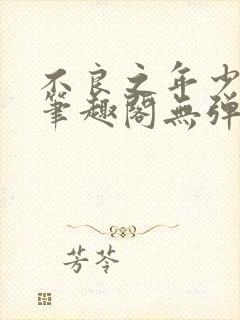 不良之年少
筆趣閣無彈
芳苓